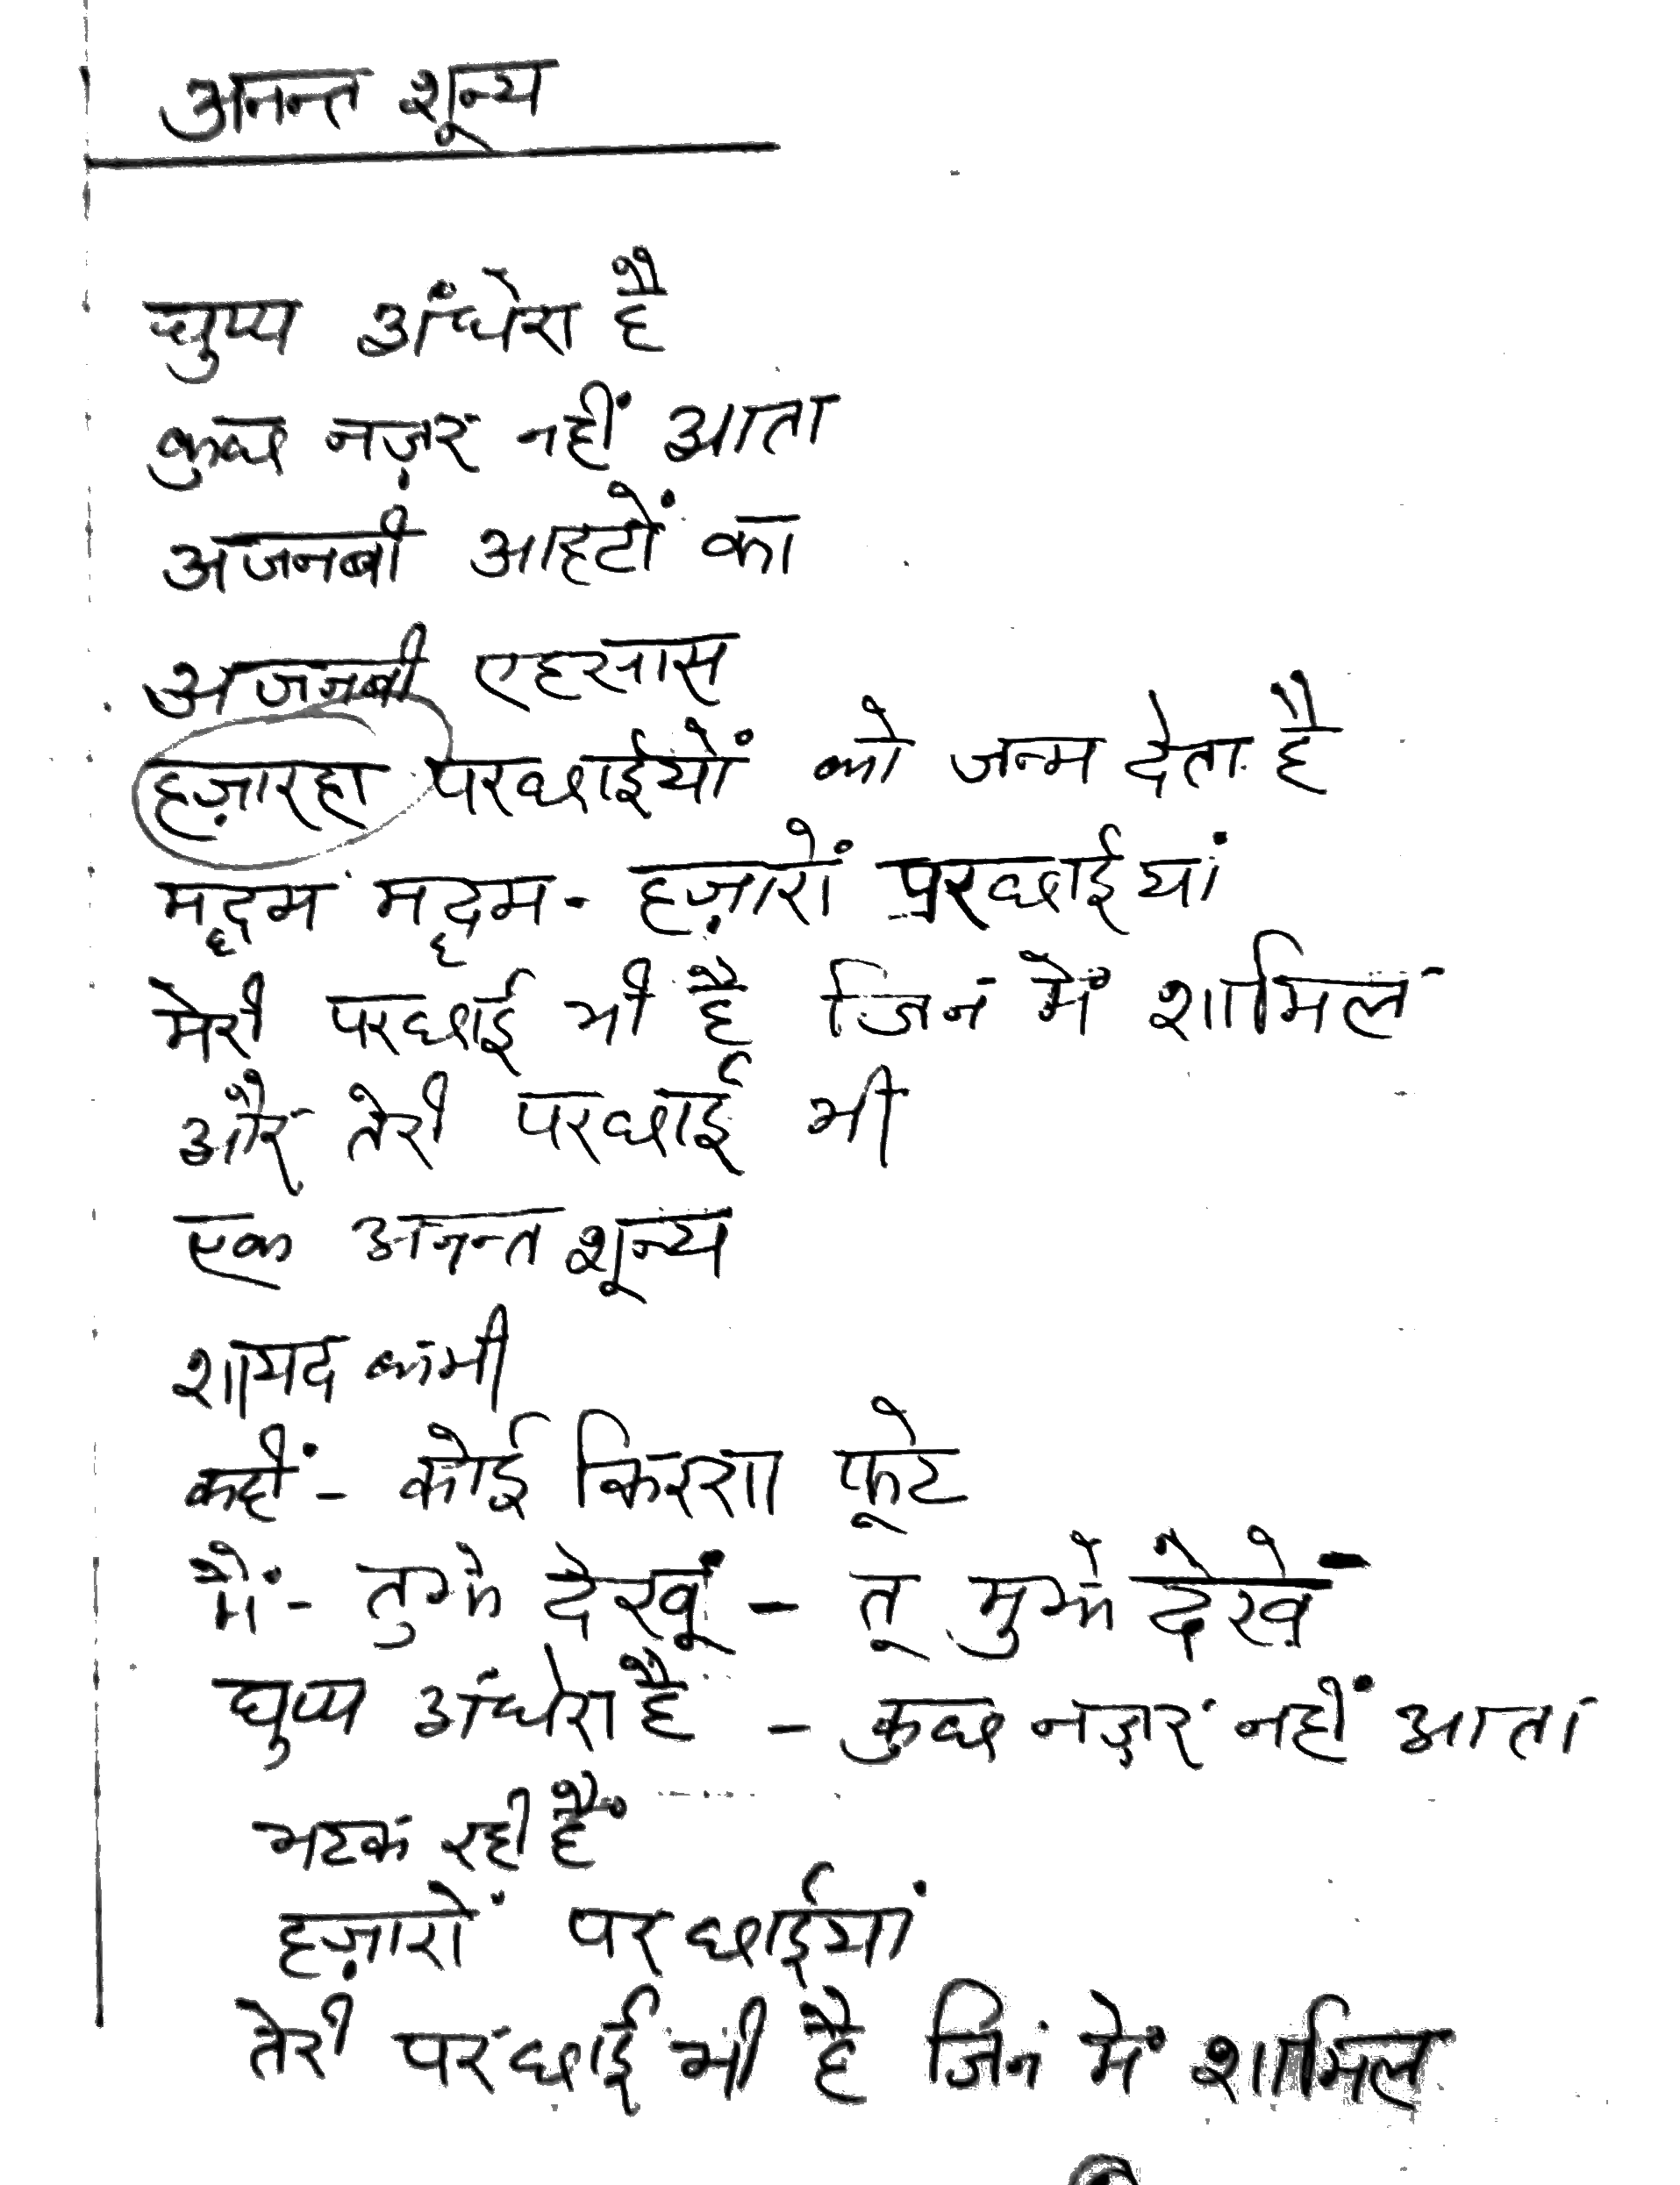 अनन्त शून्य
घुप्प अंधेरा है
कुछ नज़र नहीं आता
अजनबी आहटों का
अजनबी एहसास
हज़ारहा परछाईयों को जन्म देता है
मद्धम मद्धम - हज़ारों परछाईयां
मेरी परछाई भी है जिन में शामिल
और तेरी परछाई भी
एक अनन्त शून्य
शायद कभी
कहीं - कोई किरण फूटे
मैं - तुझे देखूं - तू मुझे देखे
घुप्प अंधेरा है - कुछ नज़र नहीं आता
भटक रही हैं
हज़ारों परछाईयां
तेरी परछाई भी है जिन में शामिल